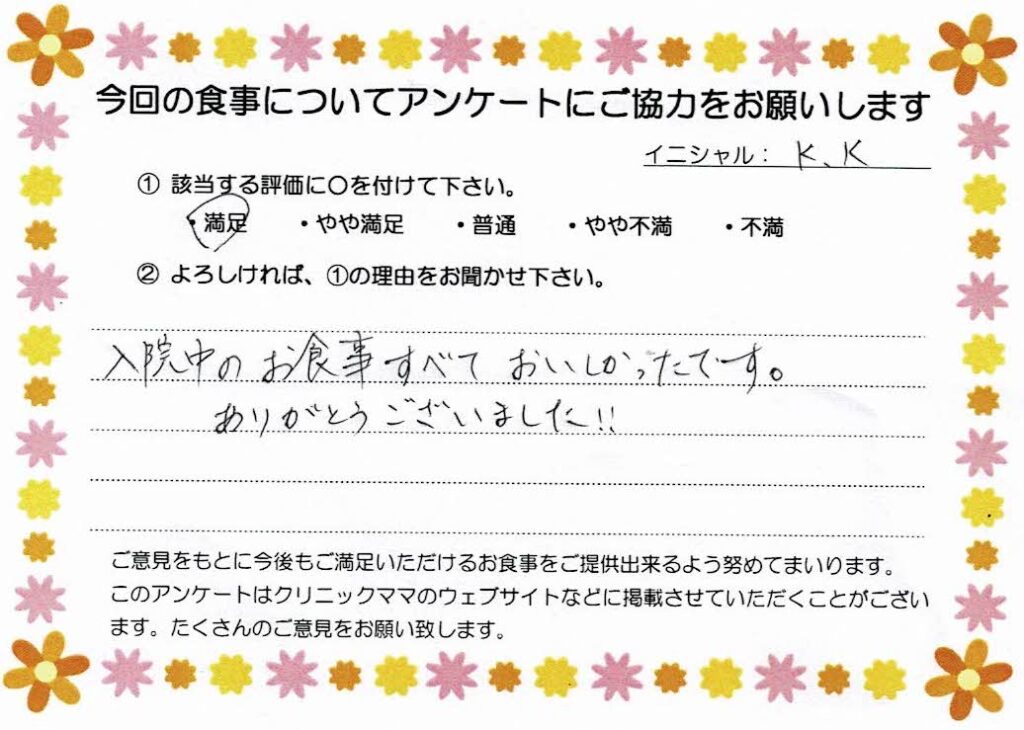 今回の食事についてアンケートにご協力をお願いします
イニシャル： K、K
① 該当する評価に〇を付けて下さい。
・満足 ・やや満足 ・普通 ・やや不満 ・不満
② よろしければ、①の理由をお聞かせ下さい。
入院中のお食事すべて おいしかったです。
ありがとうございました!!
ご意見をもとに今後もご満足いただけるお食事をご提供出来るよう努めてまいります。
このアンケートはクリニックママのウェブサイトなどに掲載させていただくことがござい
ます。たくさんのご意見をお願い致します。